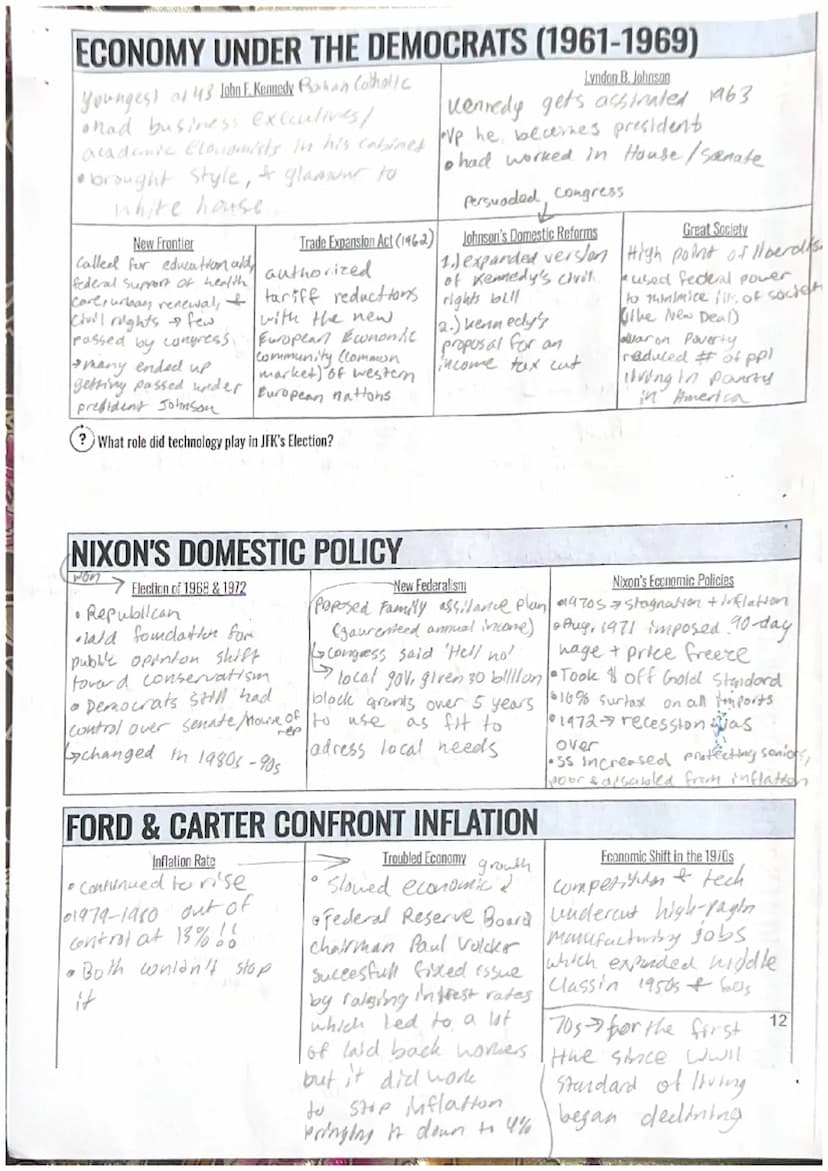 ECONOMY UNDER THE DEMOCRATS (1961-1969)
John F. Kennedy
Youngest at 43 Roman Catholic
• had business executives/
academic economists in his cabinet
• brought style, & glamour to
white house
Lyndon B. Johnson
Kennedy gets assinated 1963
• VP he becomes president
• had worked in House/Senate
persuaded congress
New Frontier
Called for education aid,
federal support of health
care, urban renewal, &
civil rights → few
passed by congress
→ many ended up
getting passed under
president Johnson
Trade Expansion Act (1962)
authorized
tariff reductions
with the new
European Economic
community (common
market) of western
European nations
Johnson's Domestic Reforms
1.) expanded version
of Kennedy's civil
rights bill
2.) Kennedy's
proposal for an
income tax cut
Great Society
High point of liberalis
• used federal power
to minimize ills of societ
(like New Deal)
• War on Poverty
reduced # of ppl
living in poverty
in America
? What role did technology play in JFK's Election?
NIXON'S DOMESTIC POLICY
won →
Election of 1968 & 1972
• Republican
• laid foundation for
public opinion shift
toward conservatism
• Democrats still had
control over senate/house of
rep
↳ changed in 1980s-90s
New Federalism
Poposed Family assistance plan
(gaurenteed annual income)
↳ congress said 'Hell no'
→ local gov. given 30 billion
block grants over 5 years
to use as fit to
adress local needs
Nixon's Economic Policies
• 1970s → stagnation + inflation
• Aug. 1971 imposed 90-day
wage + price freeze
• Took $ off Gold Standard
• 10% surtax on all imports
• 1972 → recession was
over
• SS increased protecting seniors,
poor & disabled from inflation
FORD & CARTER CONFRONT INFLATION
Inflation Rate
• continued to rise
• 1979-1980 out of
control at 13%!!
• Both couldn't stop
it
Troubled Economy
• Slowed economic growth
• Federal Reserve Board
chairman Paul Volcker
succesfull fixed issue
by raiging intrest rates
which led to a lot
of laid back workers
but it did work
to stop inflation
bringing it down to 4%
Economic Shift in the 1970s
competition & tech
undercut high-payin
manufacturing jobs
which expanded middle
class in 1950s & 60s
70s → for the first
time since WWII
standard of living
began declining
12